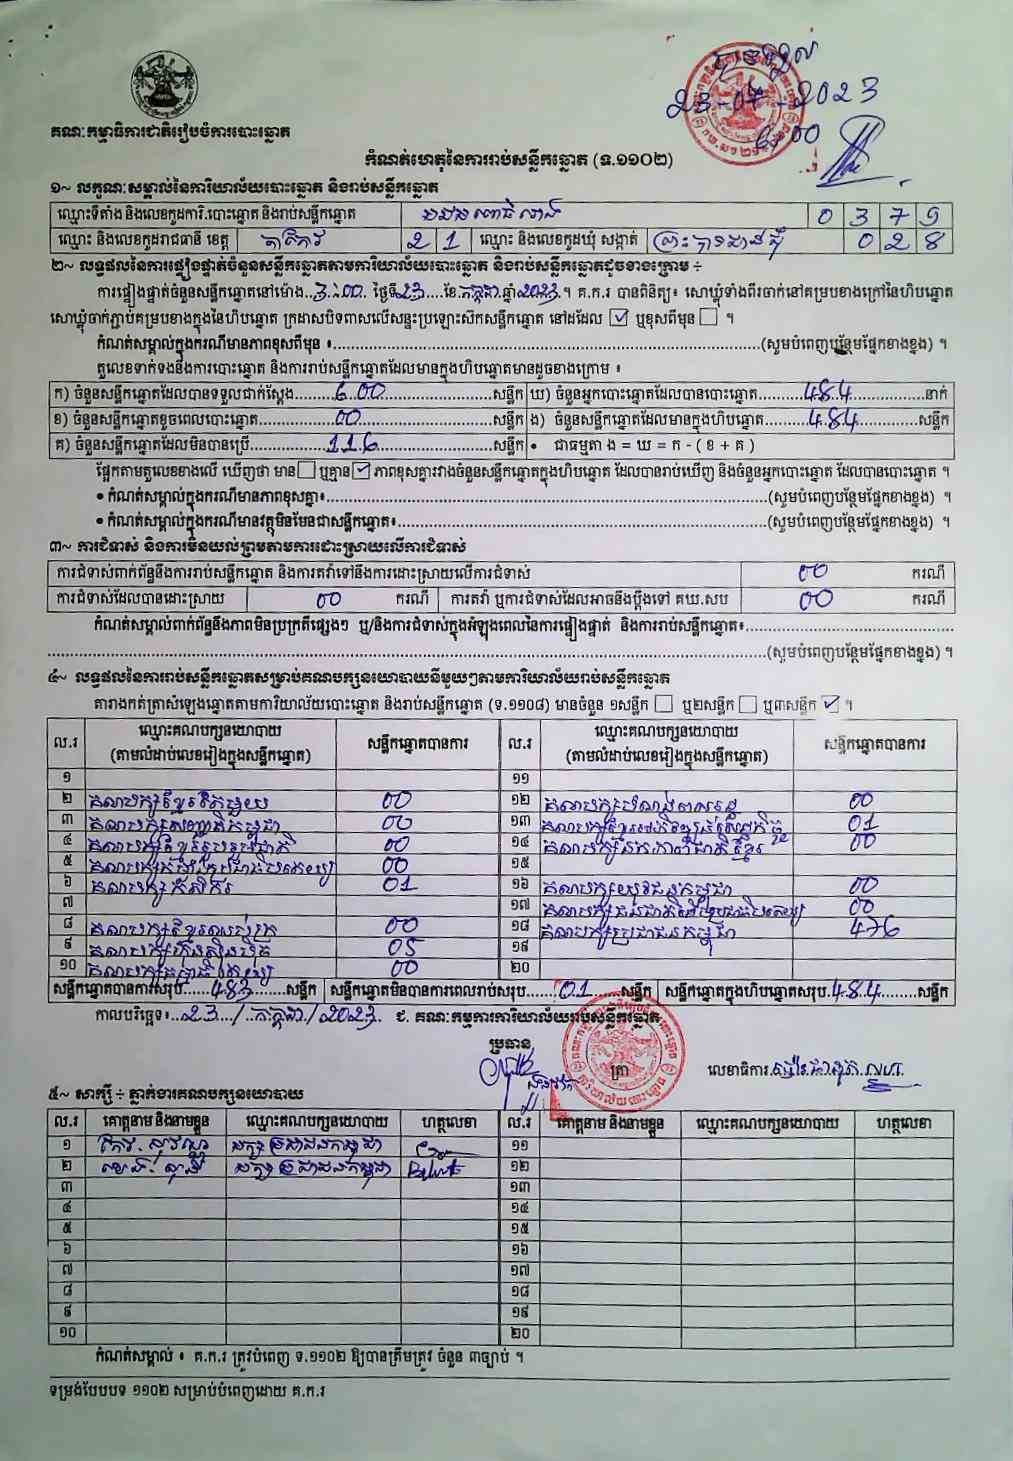 បានទទួល
23-07-2023
គណៈកម្មាធិការជាតិរៀបចំការបោះឆ្នោត
កំណត់ហេតុនៃការរាប់សន្លឹកឆ្នោត (ទ.១១០២)
១~ លក្ខណៈសម្គាល់នៃការិយាល័យបោះឆ្នោត និងរាប់សន្លឹកឆ្នោត
ឈ្មោះទីតាំង និងលេខកូដការិ.បោះឆ្នោត និងរាប់សន្លឹកឆ្នោត 0 3 7 9
ឈ្មោះ និងលេខកូដរាជធានី ខេត្ត តាកែវ 2 1 ឈ្មោះ និងលេខកូដឃុំ សង្កាត់ ព្រះបាទជាន់ជុំ 0 2 8
២~ លទ្ធផលនៃការផ្ទៀងផ្ទាត់ចំនួនសន្លឹកឆ្នោតតាមការិយាល័យបោះឆ្នោត និងរាប់សន្លឹកឆ្នោតដូចខាងក្រោម ÷
ការផ្ទៀងផ្ទាត់ចំនួនសន្លឹកឆ្នោតនៅម៉ោង 3:00 ថ្ងៃទី 23 ខែ កក្កដា ឆ្នាំ 2023 ។ គ.ក.រ បានពិនិត្យ៖ សោឃ្លុំទាំងពីរចាក់នៅគម្របខាងក្រៅនៃហិបឆ្នោត
សោឃ្លុំចាក់ភ្ជាប់គម្របខាងក្នុងនៃហិបឆ្នោត ក្រដាសបិទពាសលើសន្ទះប្រឡោះស៊កសន្លឹកឆ្នោត នៅដដែល ☑ ឬខុសពីមុន ☐ ។
កំណត់សម្គាល់ក្នុងករណីមានភាពខុសពីមុន ៖ (សូមបំពេញបន្ថែមផ្នែកខាងខ្នង) ។
តួលេខទាក់ទងនឹងការបោះឆ្នោត និងការរាប់សន្លឹកឆ្នោតដែលមានក្នុងហិបឆ្នោតមានដូចខាងក្រោម ៖
ក) ចំនួនសន្លឹកឆ្នោតដែលបានទទួលជាក់ស្តែង 600 សន្លឹក ឃ) ចំនួនអ្នកបោះឆ្នោតដែលបានបោះឆ្នោត 484 នាក់
ខ) ចំនួនសន្លឹកឆ្នោតខូចពេលបោះឆ្នោត 00 សន្លឹក ង) ចំនួនសន្លឹកឆ្នោតដែលមានក្នុងហិបឆ្នោត 484 សន្លឹក
គ) ចំនួនសន្លឹកឆ្នោតដែលមិនបានប្រើ 116 សន្លឹក • ជាធម្មតា ង = ឃ = ក - ( ខ + គ )
ផ្អែកតាមតួលេខខាងលើ ឃើញថា មាន ☐ ឬគ្មាន ☑ ភាពខុសគ្នារវាងចំនួនសន្លឹកឆ្នោតក្នុងហិបឆ្នោត ដែលបានរាប់ឃើញ និងចំនួនអ្នកបោះឆ្នោត ដែលបានបោះឆ្នោត ។
• កំណត់សម្គាល់ក្នុងករណីមានភាពខុសគ្នា៖ (សូមបំពេញបន្ថែមផ្នែកខាងខ្នង) ។
• កំណត់សម្គាល់ក្នុងករណីមានវត្ថុមិនមែនជាសន្លឹកឆ្នោត៖ (សូមបំពេញបន្ថែមផ្នែកខាងខ្នង) ។
៣~ ការជំទាស់ និងការមិនយល់ព្រមតាមការដោះស្រាយលើការជំទាស់
ការជំទាស់ពាក់ព័ន្ធនឹងការរាប់សន្លឹកឆ្នោត និងការតវ៉ាទៅនឹងការដោះស្រាយលើការជំទាស់ 00 ករណី
ការជំទាស់ដែលបានដោះស្រាយ 00 ករណី ការតវ៉ា ឬការជំទាស់ដែលអាចនឹងប្តឹងទៅ គឃ.សប 00 ករណី
កំណត់សម្គាល់ពាក់ព័ន្ធនឹងភាពមិនប្រក្រតីផ្សេងៗ ឬ/និងការជំទាស់ក្នុងអំឡុងពេលនៃការផ្ទៀងផ្ទាត់ និងការរាប់សន្លឹកឆ្នោត៖
(សូមបំពេញបន្ថែមផ្នែកខាងខ្នង) ។
៤~ លទ្ធផលនៃការរាប់សន្លឹកឆ្នោតសម្រាប់គណបក្សនយោបាយនីមួយៗតាមការិយាល័យរាប់សន្លឹកឆ្នោត
តារាងកត់ត្រាសំឡេងឆ្នោតតាមការិយាល័យបោះឆ្នោត និងរាប់សន្លឹកឆ្នោត (ទ.១១០៨) មានចំនួន ១សន្លឹក ☐ ឬ២សន្លឹក ☐ ឬ៣សន្លឹក ☑ ។
ល.រ ឈ្មោះគណបក្សនយោបាយ (តាមលំដាប់លេខរៀងក្នុងសន្លឹកឆ្នោត) សន្លឹកឆ្នោតបានការ ល.រ ឈ្មោះគណបក្សនយោបាយ (តាមលំដាប់លេខរៀងក្នុងសន្លឹកឆ្នោត) សន្លឹកឆ្នោតបានការ
១ ១១
២ គណបក្សខ្មែរតែមួយ 00 ១២ 00
៣ គណបក្សសញ្ជាតិកម្ពុជា 00 ១៣ គណបក្សខ្មែរអភិវឌ្ឍន៍សេដ្ឋកិច្ច 01
៤ គណបក្សខ្មែររួបរួមជាតិ 00 ១៤ 00
៥ 00 ១៥
៦ គណបក្សកសិករ 01 ១៦ គណបក្សយុវជនកម្ពុជា 00
៧ ១៧ 00
៨ គណបក្សខ្មែរឈប់ក្រ 00 ១៨ គណបក្សប្រជាជនកម្ពុជា 476
៩ គណបក្សហ្វ៊ុនស៊ិនប៉ិច 05 ១៩
១០ គណបក្សធម្មាធិបតេយ្យ 00 ២០
សន្លឹកឆ្នោតបានការសរុប 483 សន្លឹក សន្លឹកឆ្នោតមិនបានការពេលរាប់សរុប 01 សន្លឹក សន្លឹកឆ្នោតក្នុងហិបឆ្នោតសរុប 484 សន្លឹក
កាលបរិច្ឆេទ៖ 23 / កក្កដា / 2023 ជ. គណៈកម្មការការិយាល័យរាប់សន្លឹកឆ្នោត
ប្រធាន
ត្រា លេខាធិការ
៥~ សាក្សី ÷ ភ្នាក់ងារគណបក្សនយោបាយ
ល.រ គោត្តនាម និងនាមខ្លួន ឈ្មោះគណបក្សនយោបាយ ហត្ថលេខា ល.រ គោត្តនាម និងនាមខ្លួន ឈ្មោះគណបក្សនយោបាយ ហត្ថលេខា
១ កែវ សុវណ្ណ បក្សប្រជាជនកម្ពុជា ១១
២ បក្សប្រជាជនកម្ពុជា ១២
៣ ១៣
៤ ១៤
៥ ១៥
៦ ១៦
៧ ១៧
៨ ១៨
៩ ១៩
១០ ២០
កំណត់សម្គាល់ ៖ គ.ក.រ ត្រូវបំពេញ ទ.១១០២ ឱ្យបានត្រឹមត្រូវ ចំនួន ៣ច្បាប់ ។
ទម្រង់បែបបទ ១១០២ សម្រាប់បំពេញដោយ គ.ក.រ